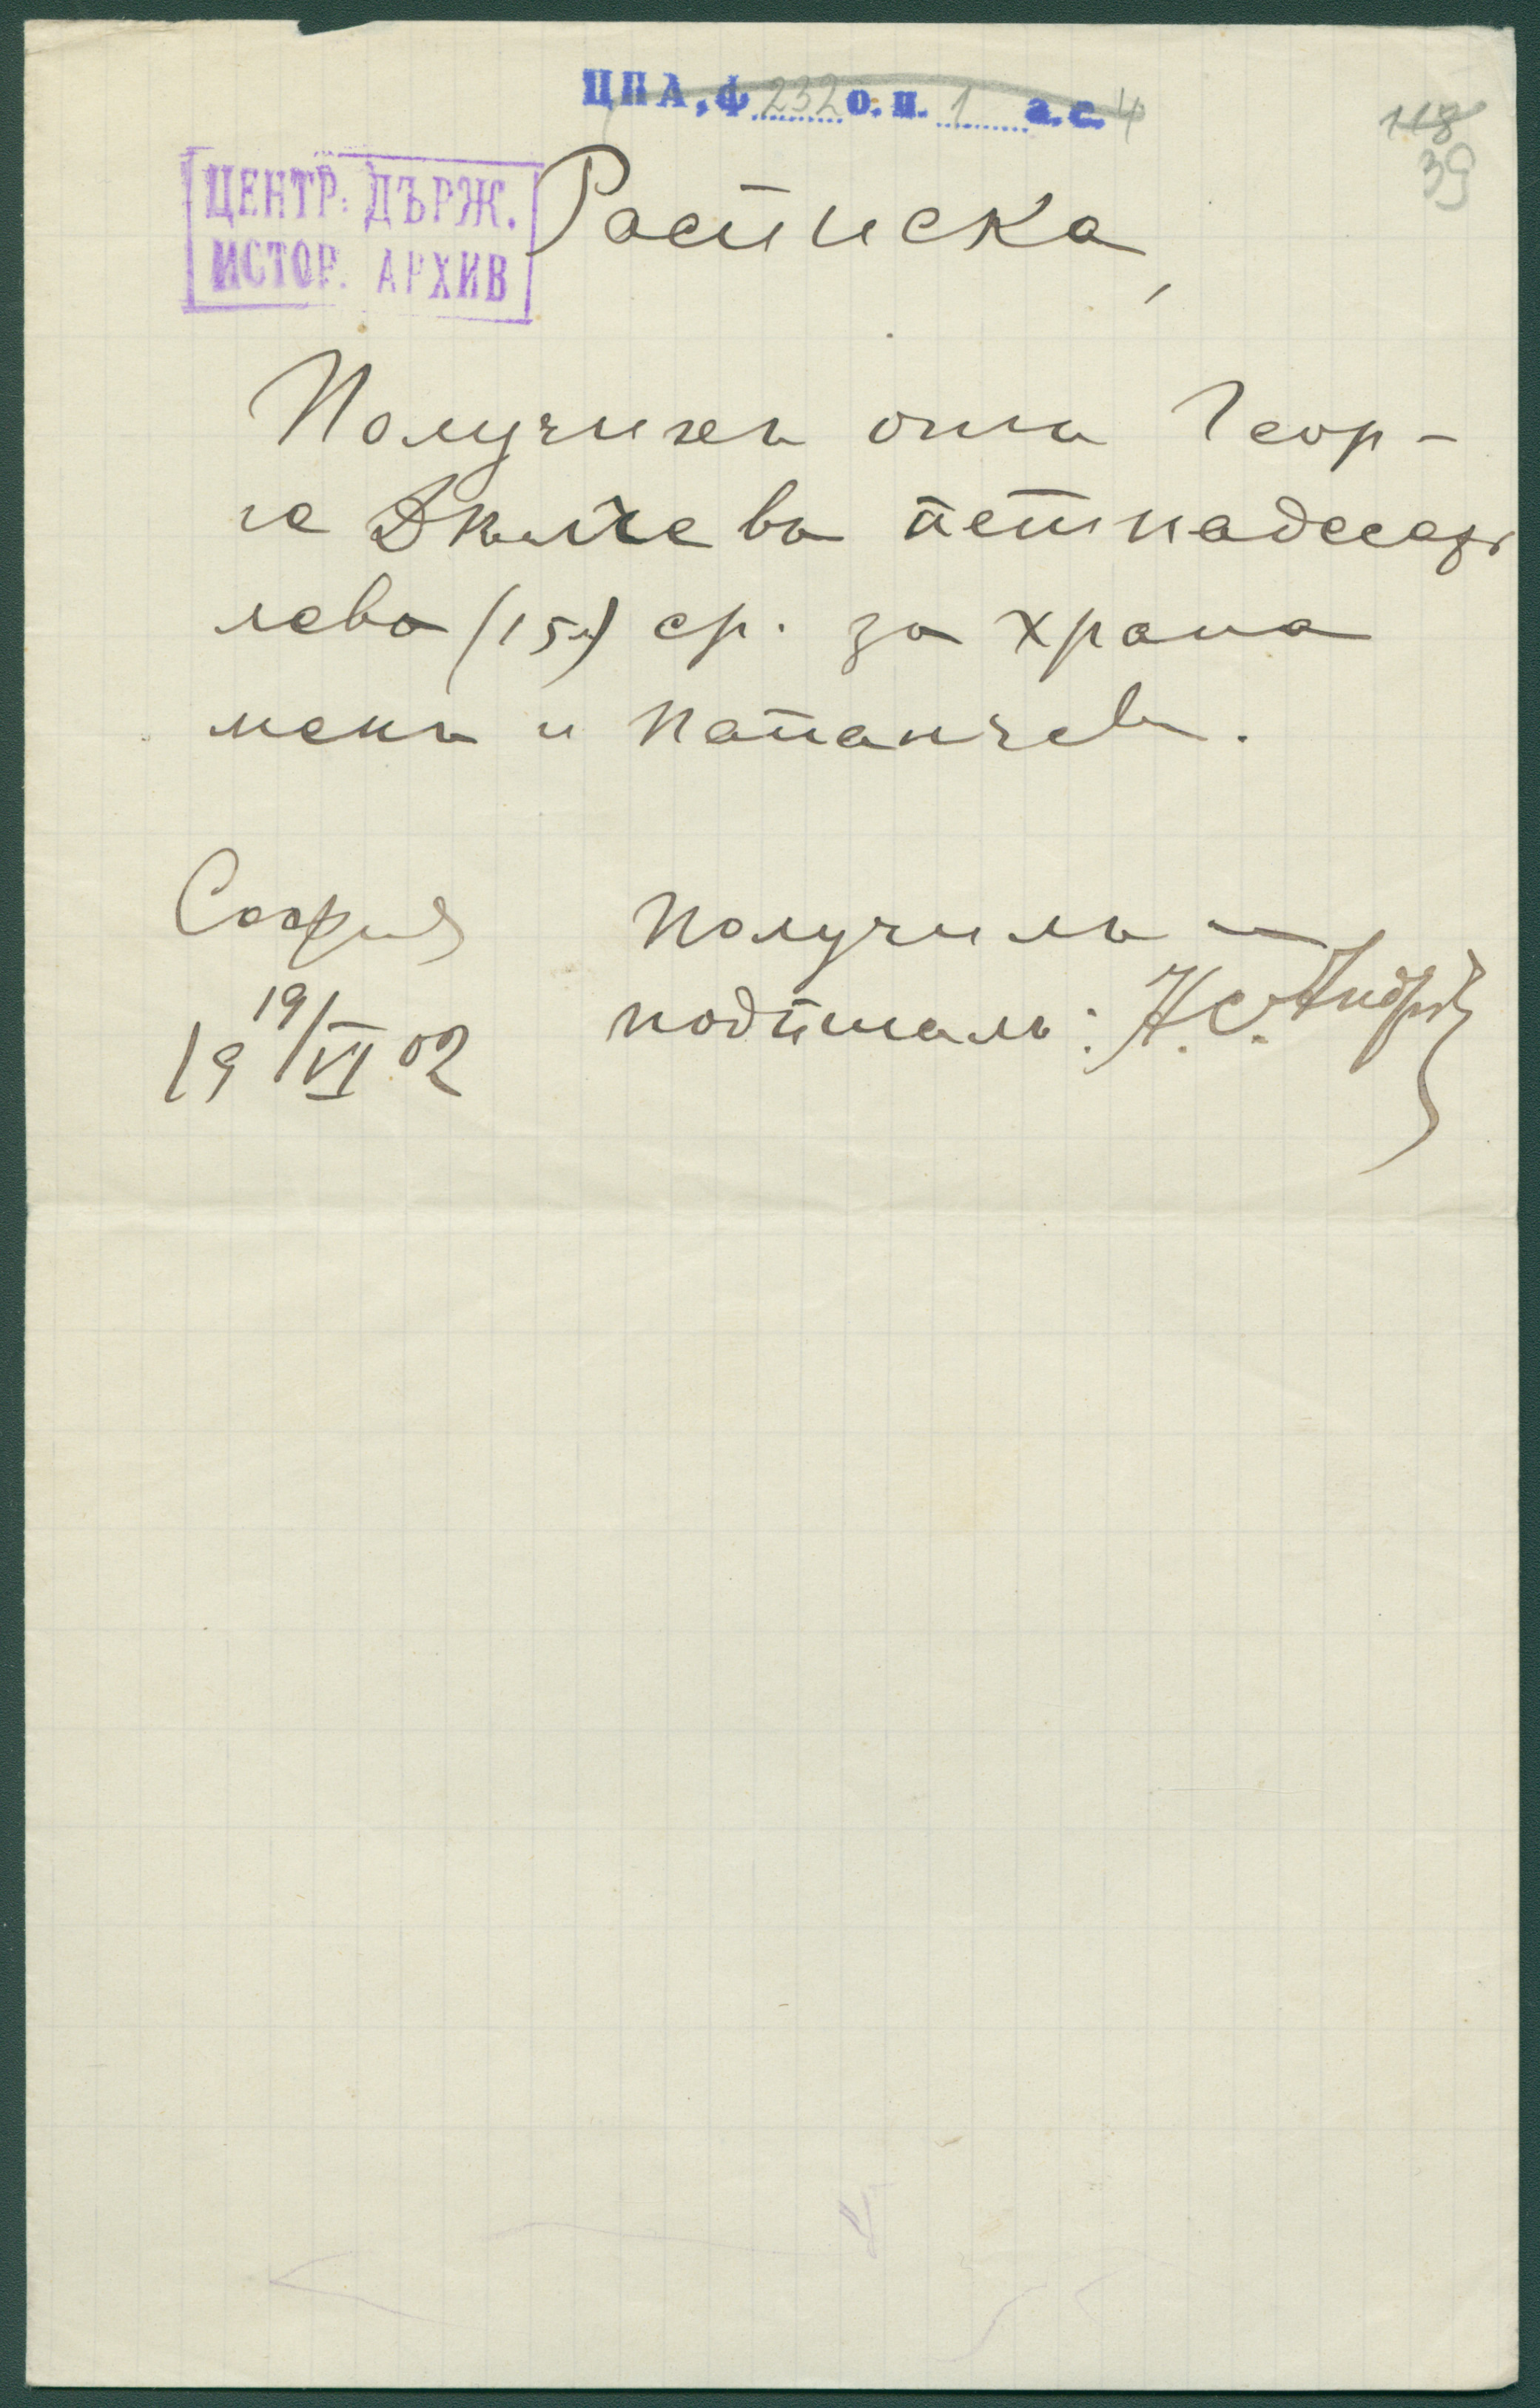 ЦПА, ф 232 о. п. 1 а. е. 4
118
39
ЦЕНТР. ДЪРЖ.
ИСТОР. АРХИВ
Расписка,
Получихъ отъ Геор-
ге Дѣлчевъ петнадесеть
лева (15л) ср. за храна
менъ и Патанчевъ.
София
19 19/VI 02
Получилъ —
подписалъ: Н. С.